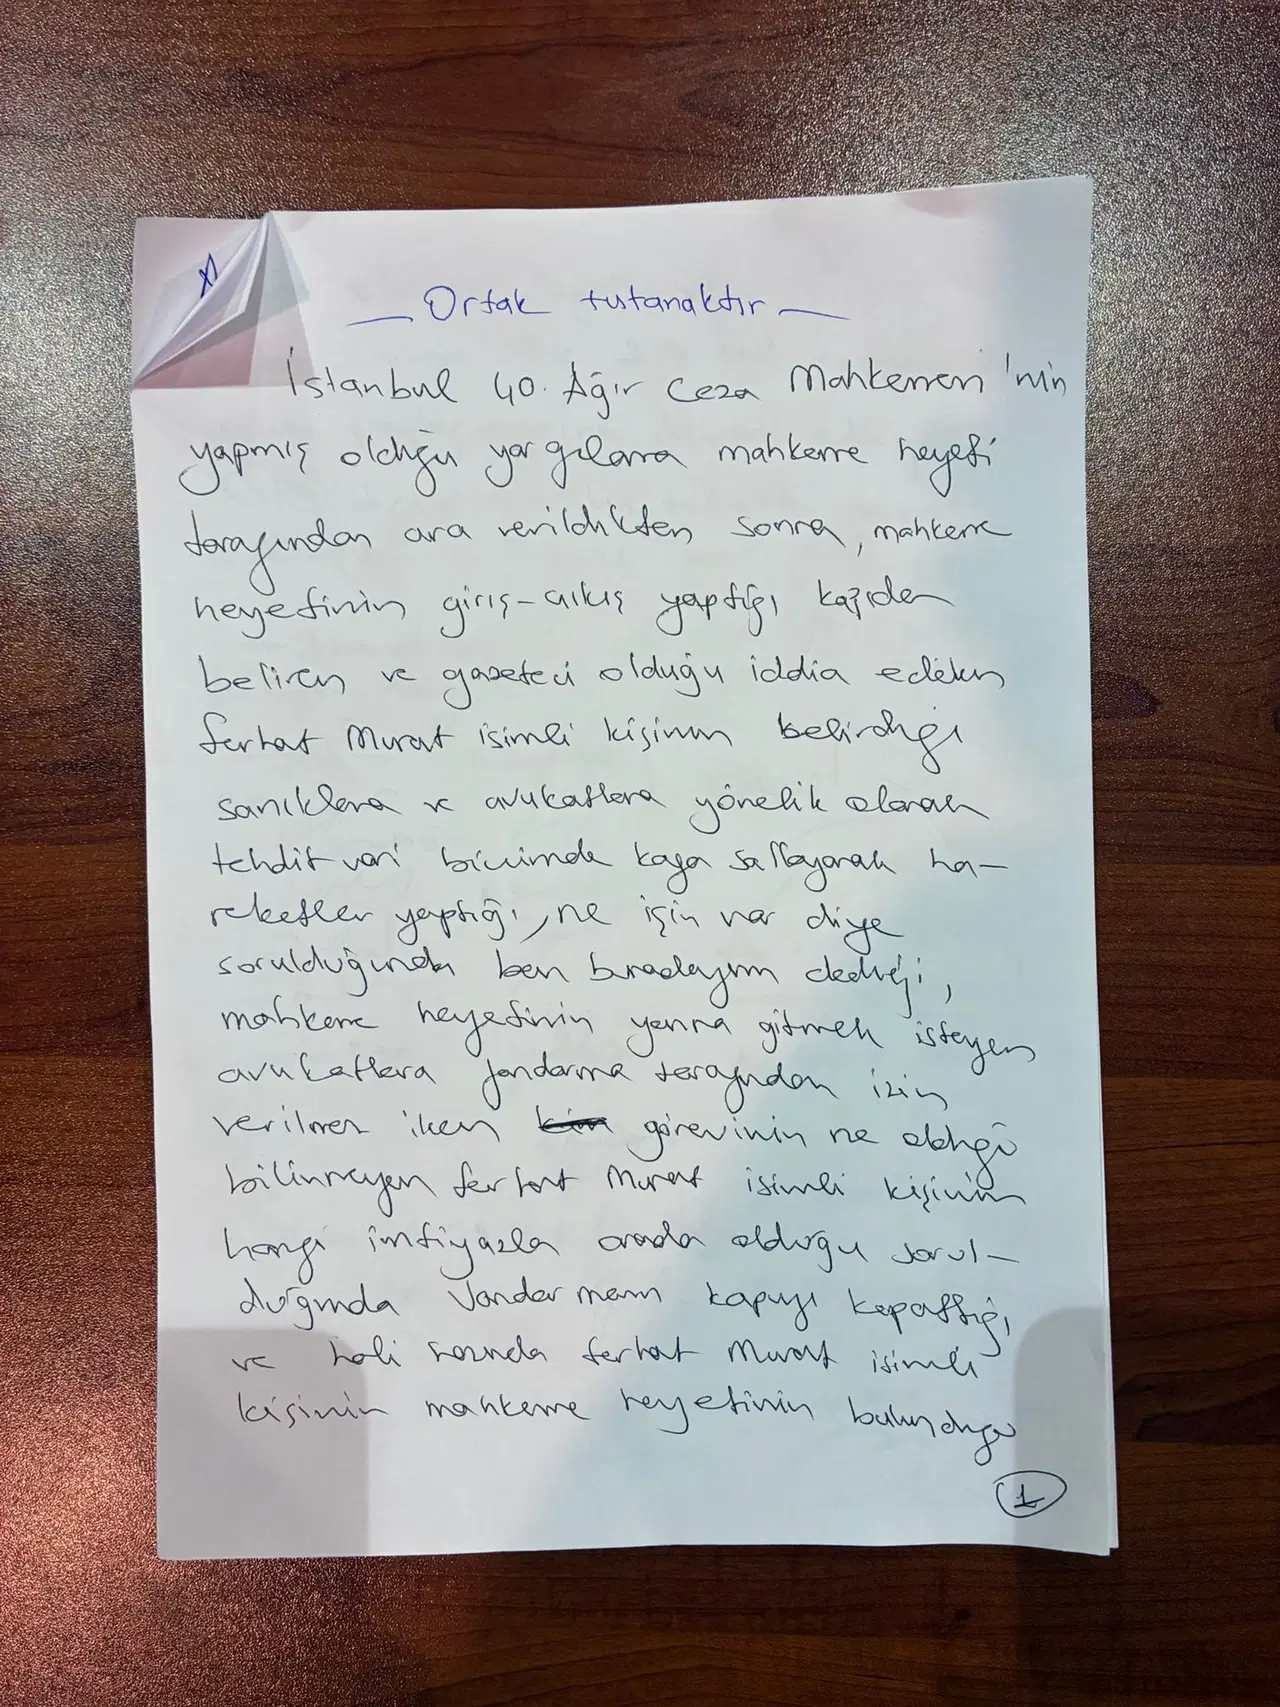 Ortak tutanaktır
İstanbul 40. Ağır Ceza Mahkemesi'nin
yapmış olduğu yargılama mahkeme heyeti
tarafından ara verildikten sonra, mahkeme
heyetinin giriş-çıkış yaptığı kapıdan
beliren ve gazeteci olduğu iddia edilen
Ferhat Murat isimli kişinin belirdiği
sanıklara ve avukatlara yönelik olarak
tehditvari biçimde kafa sallayarak ha-
reketler yaptığı, ne işin var diye
sorulduğunda ben buradayım dediği,
mahkeme heyetinin yanına gitmek isteyen
avukatlara jandarma tarafından izin
verilmez iken görevinin ne olduğu
bilinmeyen Ferhat Murat isimli kişinin
hangi imtiyazla orada olduğu sorul-
duğunda Jandarmanın kapıyı kapattığı,
ve hali hazırda Ferhat Murat isimli
kişinin mahkeme heyetinin bulunduğu
1